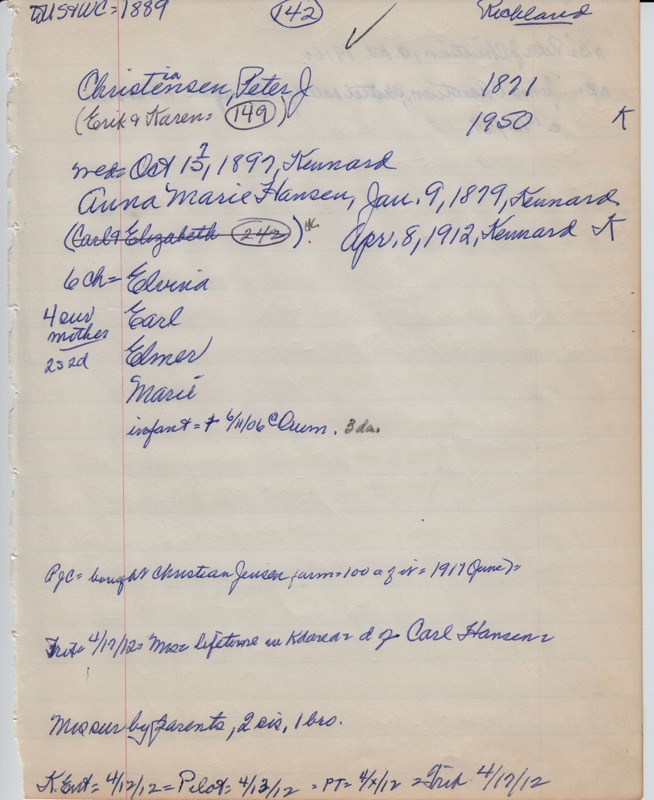 toUS&WC=1889 142 Richland
Christensen, Peter J 1821
(Erik & Karen= 149) 1950 K
med= Oct 15, 1897, Kennard
Anna Marie Hansen, Jan. 9, 1879, Kennard
(Carl & Elizabeth 242) Apr. 8, 1912, Kennard K
6 ch= Elvina
4 sur Earl
mother
2s 2d Elmer
Marie
infant = + 6/11/06 @ Orum. 3 da.
PJC= bought Christian Jensen farm=100 a of it= 1917 (June)=
Trib= 4/17/12= Mrs= lifetime in K d of Carl Hansen=
Mrs sur by parents, 2 sis, 1 bro.
K.Ent= 4/12/12= Pilot= 4/13/12 = PT= 4/X/12 = Trib 4/17/12